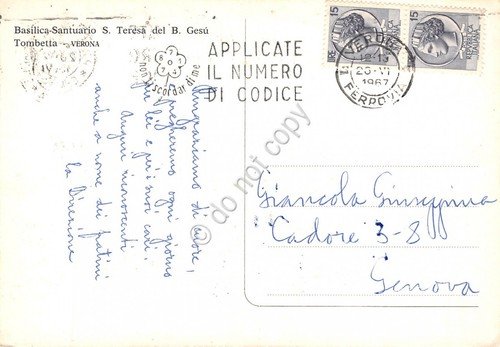 Basilica-Santuario S. Teresa del B. Gesú
Tombetta - VERONA
non ti scordar di me
APPLICATE
IL NUMERO
DI CODICE
FERROVIA
1967
15
15
Ringraziamo di cuore,
pregheremo ogni giorno
per lei e per i suoi cari.
Auguri riconoscenti
anche a nome dei fratini
La Direzione
Giancola Giuseppina
Cadore 3-8
Genova
do not copy